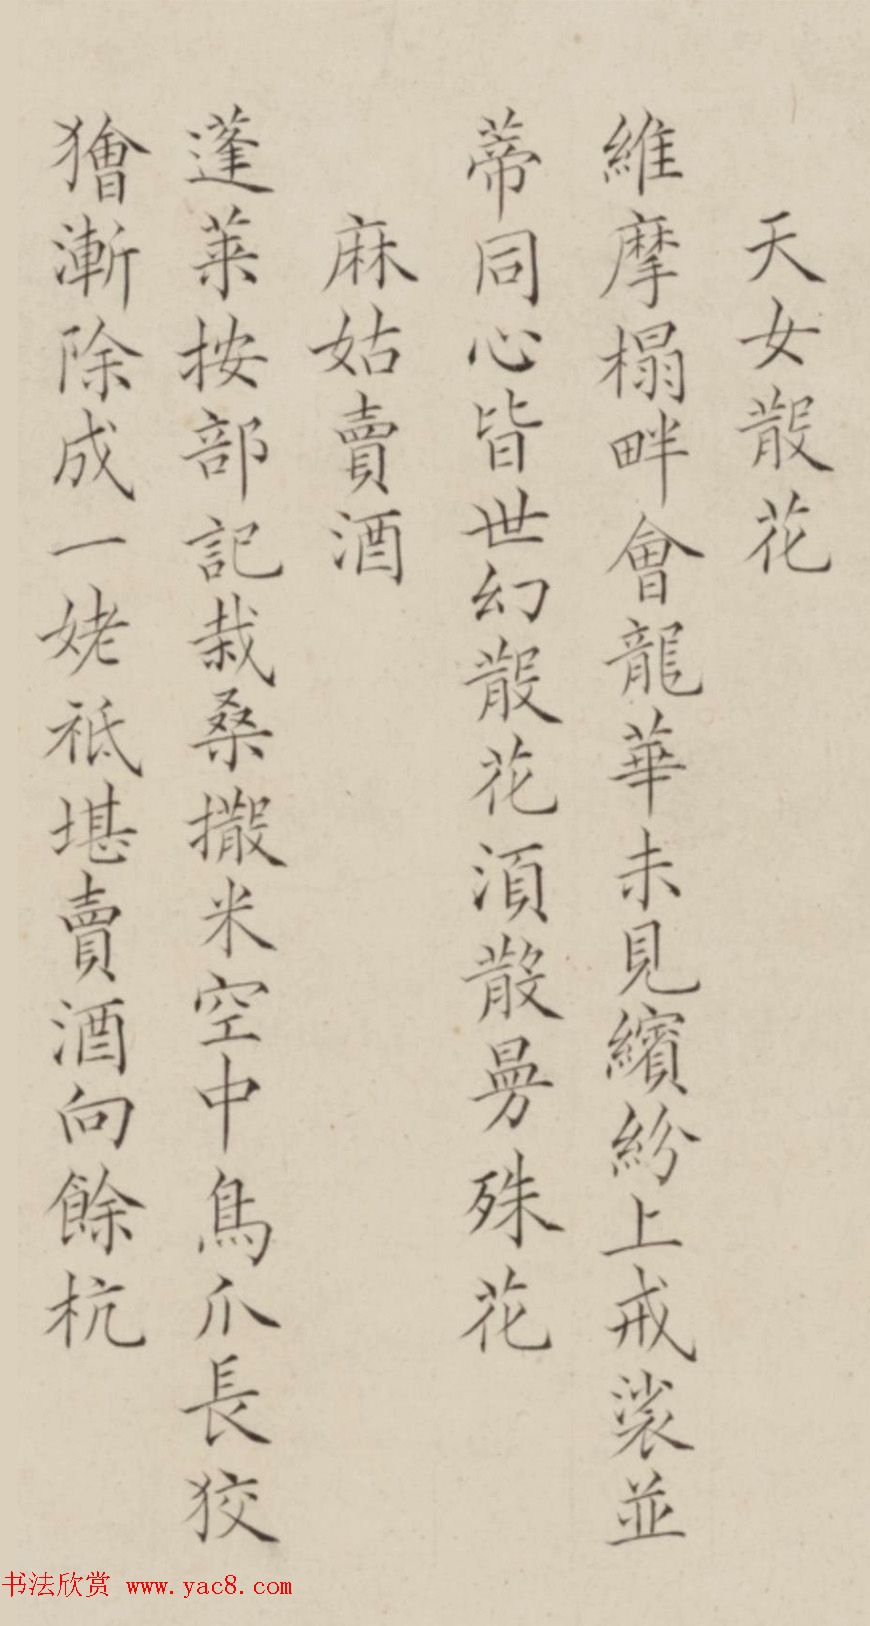 天女散花
維摩榻畔會龍華未見繽紛上戒裟並
蒂同心皆世幻散花須散曼殊花
麻姑賣酒
蓬萊按部記栽桑撒米空中鳥爪長狡
獪漸除成一姥祗堪賣酒向餘杭
书法欣赏 www.yac8.com